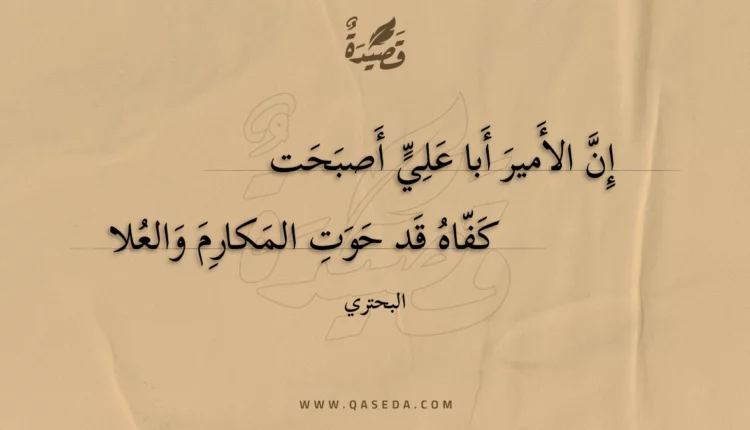 قَصِيدَةٌ
إِنَّ الأَميرَ أَبا عَلِيٍّ أَصبَحَت
كَفّاهُ قَد حَوَتِ المَكارِمَ وَالعُلا
البحتري
WWW.QASEDA.COM